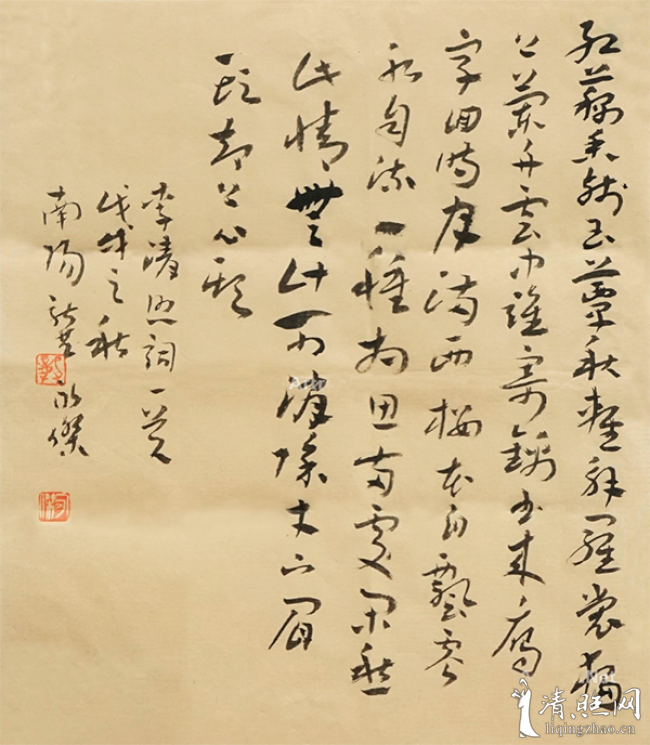 紅藕香殘玉簟秋輕解羅裳獨
上蘭舟雲中誰寄錦書來鴈
字回時月滿西樓花自飄零
水自流一種相思兩處閑愁
此情無計可消除才下眉
頭却上心頭
李清照詞一首
戊之秋
南陽 永傑
清旺网
liqingzhao.cn